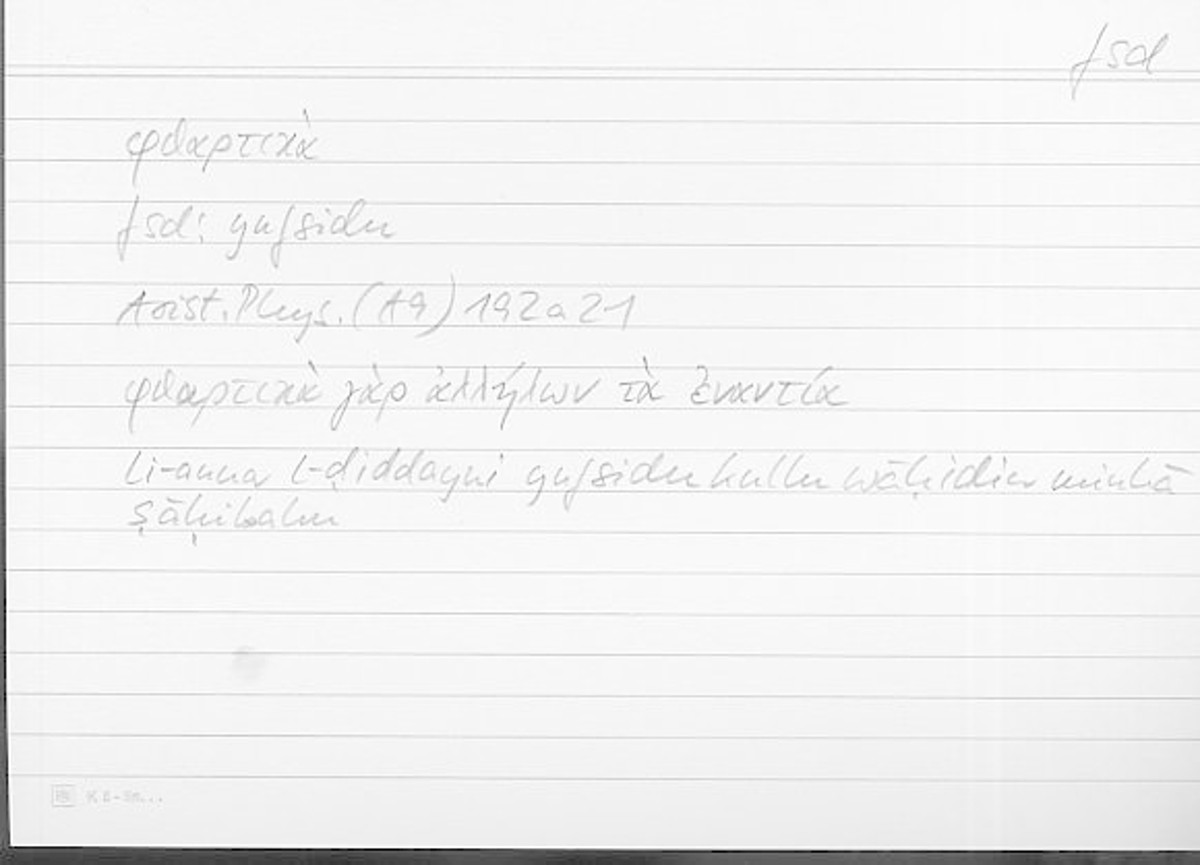 fsd
φθαρτικὰ
fsd: yufsidu
Arist. Phys. (A9) 192a21
φθαρτικὰ γὰρ ἀλλήλων τὰ ἐναντία
li-anna l-ḍiddayni yufsidu kullu wāḥidin minhā
ṣāḥibahu